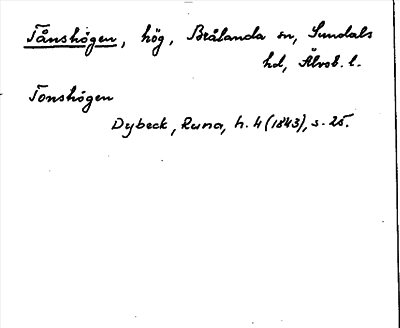 Tånshögen, hög, Brålanda sn, Sundals
hd, Älvsb. l.
Tonshögen
Dybeck, Runa, h. 4 (1843), s. 25.